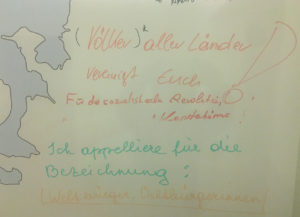 (Völker)* aller Länder
vereinigt Euch
Für die sozialistische Revolution
!
Ich appelliere für die
Bezeichnung:
(Weltbürger, Weltbürgerinnen)